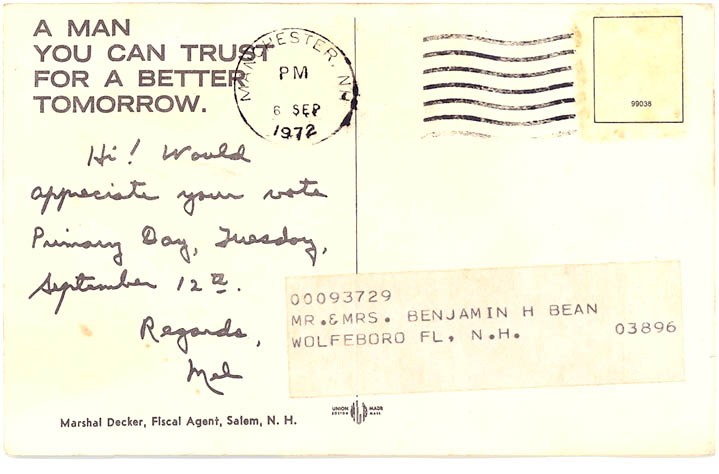 A MAN
YOU CAN TRUST
FOR A BETTER
TOMORROW.
MANCHESTER, NH
PM
6 SEP
1972
99038
Hi! Would
appreciate your vote
Primary Day, Tuesday,
September 12th.
Regards,
Mel
00093729
MR.&MRS. BENJAMIN H BEAN
WOLFEBORO FL, N.H. 03896
Marshal Decker, Fiscal Agent, Salem, N. H.
UNION MADE